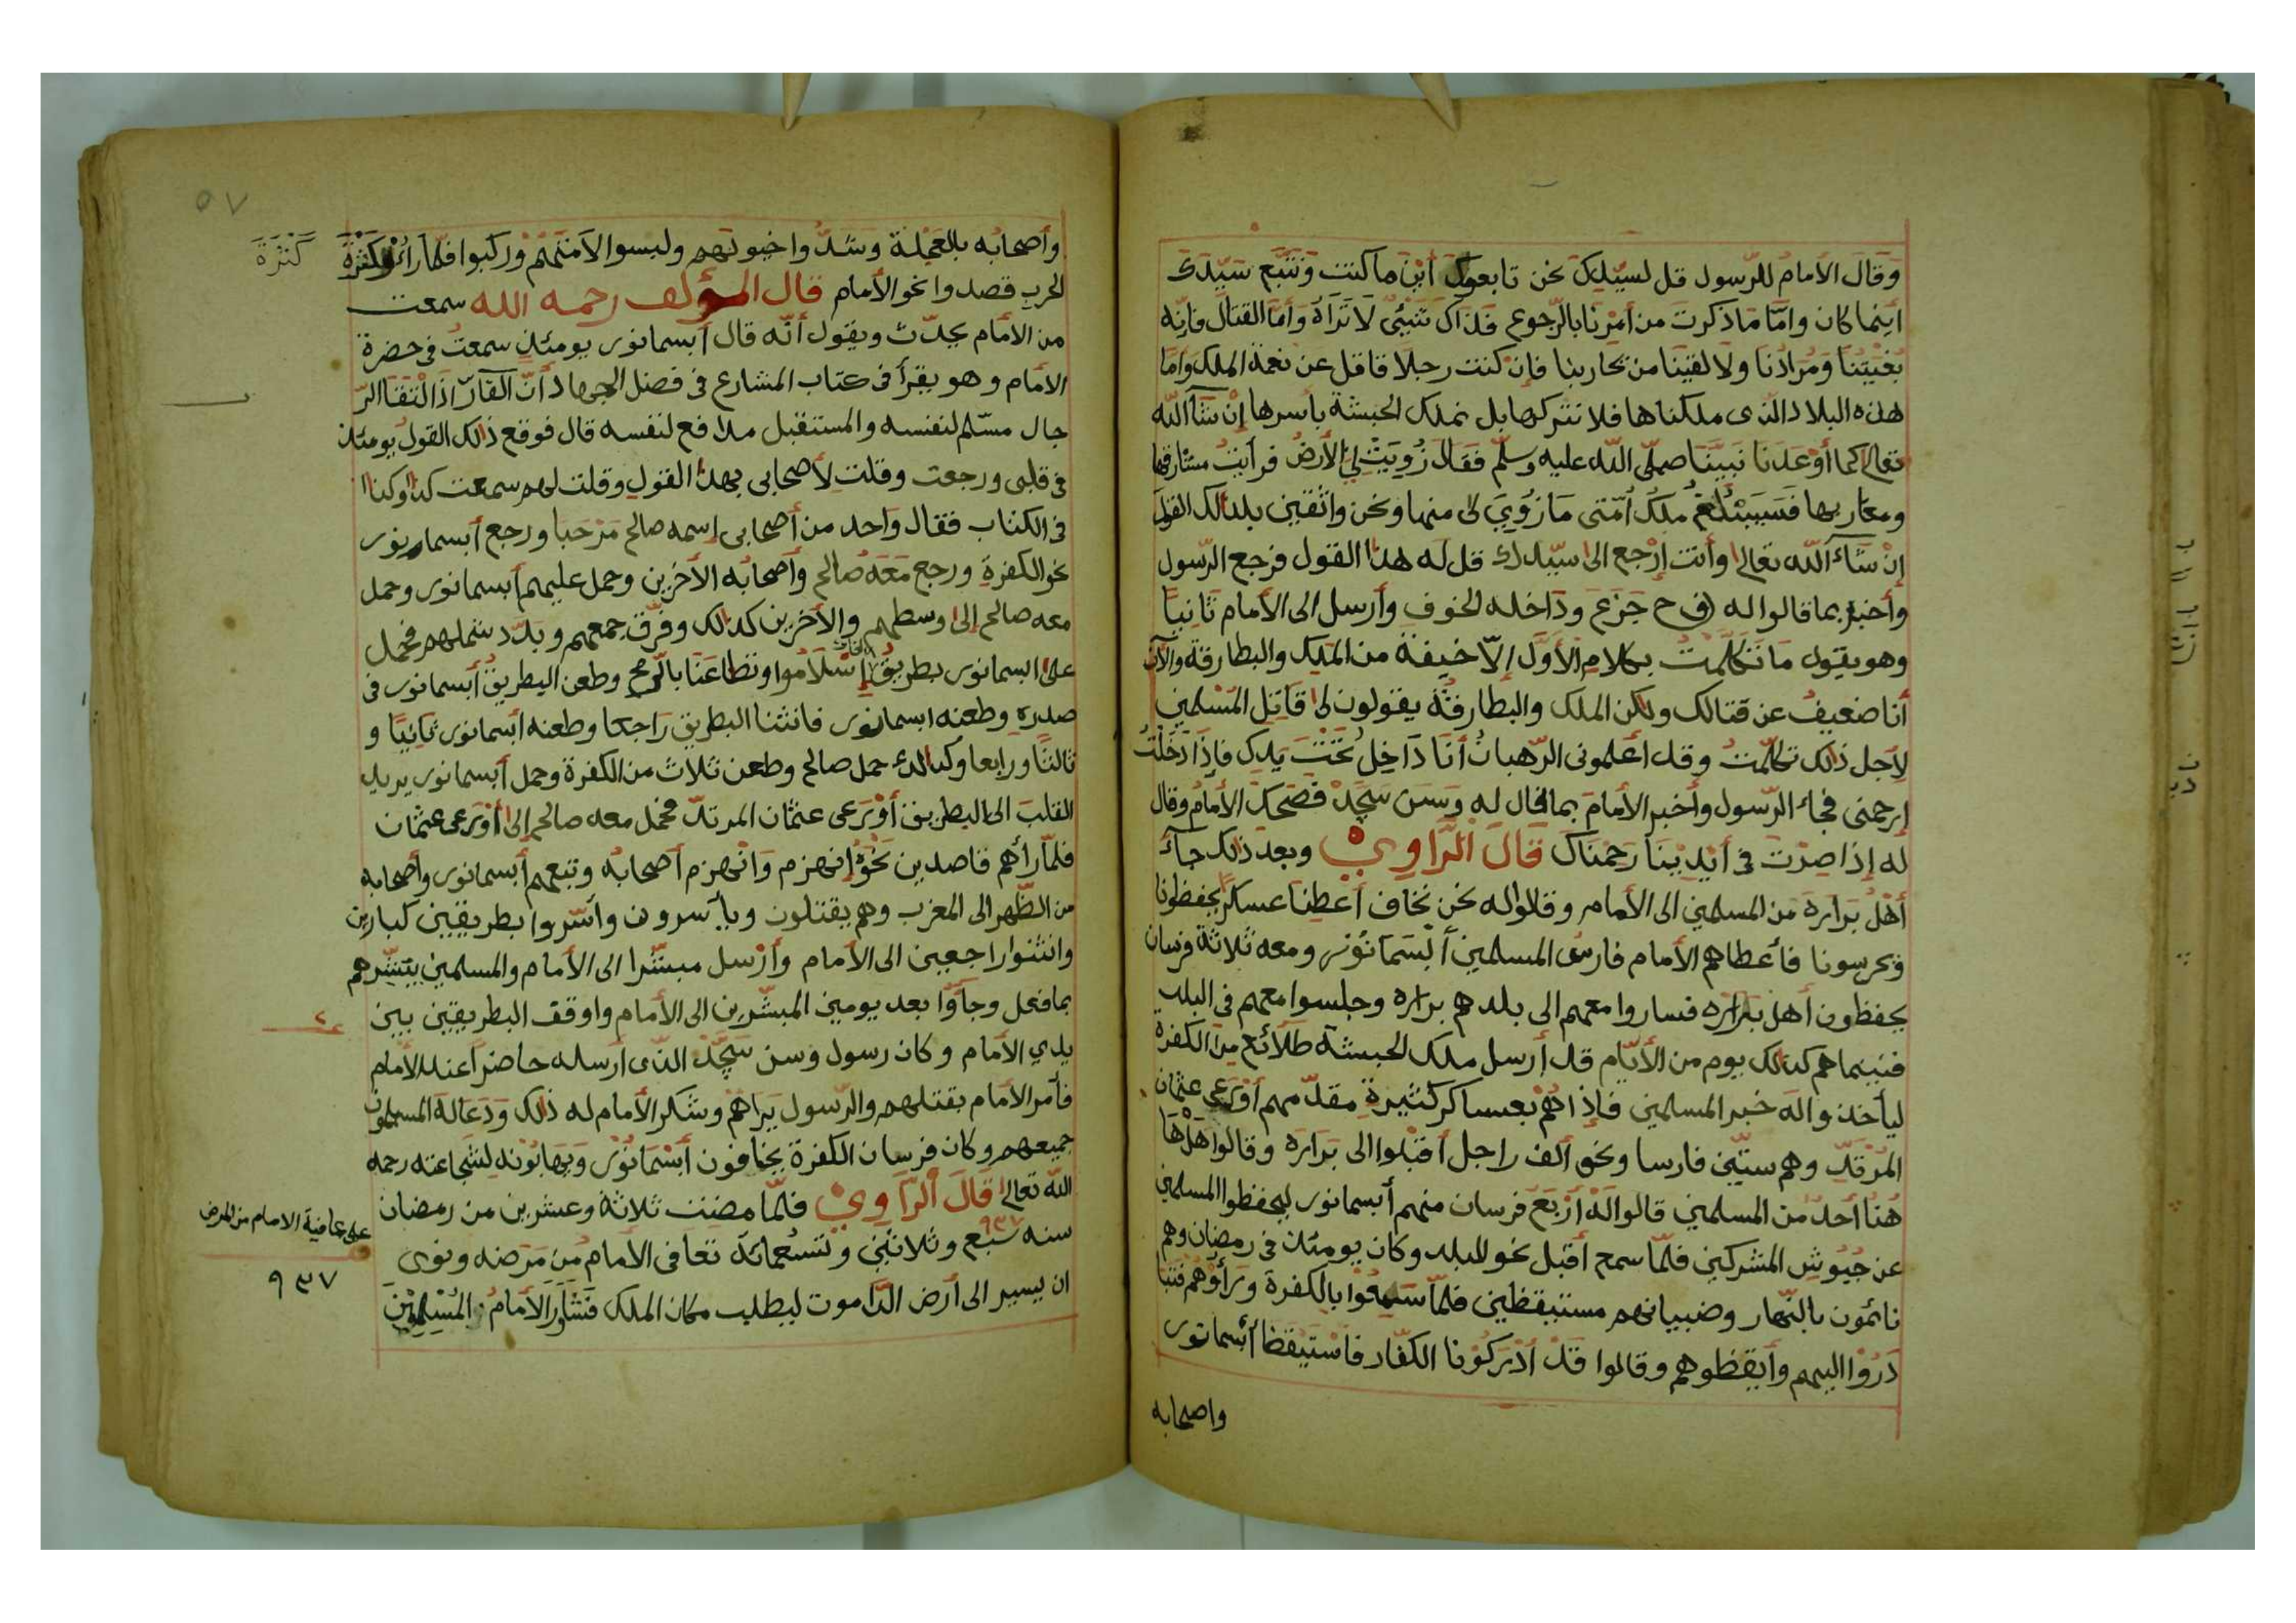 وَقَالَ الأمامُ للرّسول قل لسيّدك نحن تابعوك أَيْنَ ما كنت وَنَتَّبَع سَيّدَك
أينما كان وامّا ماذكرت من أَمرنا بالرّجوع فذاك شئ لا تَراه وَأمّا القتال فإنّه
بُغْيَتُنا وَمُرادُنا ولا لقينا من يحاربنا فإن كنت رجلا قاتل عن نعمة الملك وامّا
هذه البلاد الذى ملكناها فلا نتركها بل نملك الحبشة بأسرها إنْ شآء الله
تعالى كما أَوْعَدَنا نبيّنا صلّى الله عليه وسلّم فقال زُوِيَتْ لى الأرضُ فرأيتُ مشارقها
ومغاربها فَسَيَبْلُغُ ملكُ أمّتى مَا زُوِيَ لى منها ونحن واثقين بذالك القول
إن شآء الله تعالى وأنت إِرْجع الى سيّدك قل له هذا القول فرجع الرّسول
وأخبرَ بما قالوا له فح جَزعَ ودَاخله الخوف وأرسل الى الأمام ثانيًا
وهو يقول ما تكلّمتُ بكلام الأوّل إلاّ خيفةً من الملك والبطارقة والآن
أنا ضعيفُ عن قتالك ولكن الملك والبطارقة يقولون لى قَاتِل المُسْلمين
لأجل ذالك تكلّمتُ وقد أعلمونى الرّهبانُ أنَا دَاخلُ تحْتَ يَدِك فإِذَا دَخَلْتُ
إرحمنى فجاء الرّسول وأخبر الأمامَ بما قال له وَسَن سَجَدْ فضحك الأمامُ وقال
له إذا صِرْتَ فى أَيْدِينا رَحمْناك قَالَ الرَّاوِي وبعد ذلك جآء
أَهْلُ بَرَارَه مَن المسلمين الى الأمام وقالوا له نحن نخاف أعطِنا عسكرًا يحفظونا
ويحرسونا فأعطاهم الأمام فارسُ المسلمين أَبْسَمَا نُوْر ومعه ثَلاثة فرسان
يحفظون أهل بَرَارَه فساروا معهم الى بلدهم براره وجلسوا معهم فى البلد
فبينما هم كذالك يوم من الأيّام قد أرسل ملك الحبشة طلائع من الكفرة
ليأخذوا له خبر المسلمين فإِذا هُمْ بعساكر كثيرةٍ مقدّمهم أَوْرَعى عثمان
المُرْتَدّ وهم ستّين فارسا ونحو ألف راجل أَقْبَلوا الى بَرَارَه وقالوا هَل هَا
هُنَا أَحدُ من المسلمين قالوا لَهُ أَرْبَعَ فرسان منهم أبسمانور ليحفظوا المسلمين
عن جُيُوشِ المشركين فلمّا سمع أقبل نحو البلد وكان يومئذ فى رمضان وهم
نائمون بالنّهار وضبيانهم مستيقظين فلمّا سَمِعُوا بالكفرة وَرَأَوْهم
دَرُوْا اليهم وأَيقَظوهم وقالوا قَدْ أَدْرَكُوْنا الكفّار فاسْتَيْقظَ أَبسمانور
واصحابه
٥٧
وأصحابُه بالعَجِلة وشَدُّوا خيولهم ولبسوا لأمَتَهُمْ وركبوا فلمّا رأَتْ الكَفَرَة كَثْرَةَ
الحرب قصدوا نحو الأمام قال المؤلف رحمه الله سمعت
من الأمام يحدّث ويقول أنّه قال أبسمانور يومئذ سمعتُ فى حضرة
الأمام وهو يقرأ فى كتاب المشارع فى فضل الجهاد أنّ الفَارّ اذَا الْتقَا الرّ
جال مسّلم لنفسه والمستقبل مدافع لنفسه قال فوقع ذالك القولُ يومئذ
فى قلبى ورجعت وقلت لأصحابى بهذا القول وقلت لهم سمعت كذا وكذا
فى الكتاب فقال واحد من أصحابى إسمه صالح مَرْحَبا ورجع أبسمانور
نحو الكفرةِ ورجع مَعَهُ صالح وأَصحابُه الأخرين وحمل عليهم أبسمانور وحمل
معه صالح إلى وسطهم والأخرين كذالك وفرّق جمعهم وبدّد شملهم فحمل
على ابسمانور بطريقُ إسْلاَمُوا وتطاعَنَا بالرّمح وطعن البطريقُ أبسمانور فى
صدره وطعنه ابسمانور فانثنا البطريق راجعًا وطعنه أبسمانور ثانيًا و
ثالثًا ورابعا وكذالك حمل صالح وطعن ثلاث من الكفرة وحمل أبسمانور يريد
القلبَ الى البطريق أَوْرَعى عثمان المرتدّ فحمل معه صالح إلى أَوْرَعى عثمان
فلمّا رأهم قاصدين نَحْوَهُ إنهزم وَانْهزم أصحابُه وتبعهم أبسمانور وأصحابه
من الظّهر الى المغرب وهم يقتلون ويأسرون وأَسَروا بطريقين كبارين
وانثنوا راجعين الى الأمام وأرْسل مبشّرا الى الأمام والمسلمين يبَشّرهم
بما فعل وجآؤا بعد يومين المبشّرين الى الأمام واوقف البطريقين بين
يدي الأمام وكان رسول وسن سَجَدْ الذى أرسله حاضراً عند الأمام
فأمر الأمام بقتلهم والرّسول يَرَاهُمْ وشكر الأمام له ذالك وَدَعا لَهُ المسلمون
جميعهم وكان فرسان الكفرة يخافون أَبْسَمَانُوْر وَيهَابُوْنه لشجاعته رحمه
الله تعالى قَالَ الرّاوِي فلمّا مضت ثلاثة وعشرين من رمضان
سنه سَبْع وثلاثين وتسعمائة ٩٣٧ تعافى الأمامُ من مَرَضه ونوى
ان يسير الى أرض الدّاموت ليطلب مكان الملك فشَاوَرَ الأمامُ المُسْلِمِيْنَ
كَثْرَةَ
على عافية الامام من المرض
٩٣٧